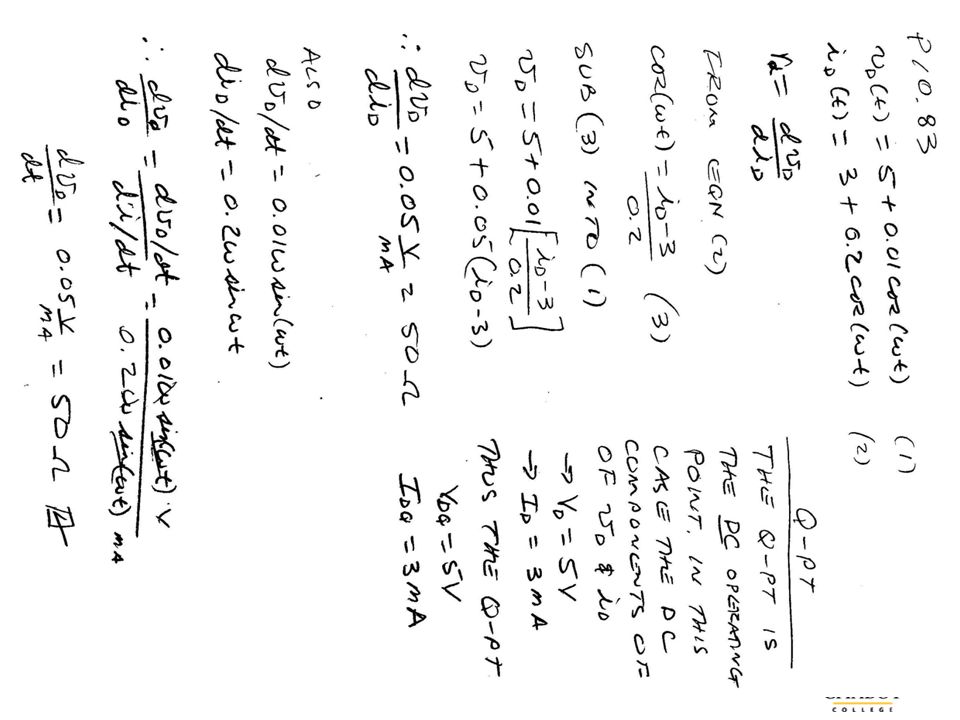 P10.83
v_D(t) = 5 + 0.01 cos(ωt) (1)
i_D(t) = 3 + 0.2 cos(ωt) (2)
r_d = dv_D / di_D
FROM EQN (2)
cos(ωt) = (i_D - 3) / 0.2 (3)
SUB (3) INTO (1)
v_D = 5 + 0.01 [(i_D - 3) / 0.2]
v_D = 5 + 0.05 (i_D - 3)
∴ dv_D / di_D = 0.05 V/mA = 50 Ω
ALSO
dv_D/dt = 0.01ω sin(ωt)
di_D/dt = 0.2ω sin ωt
∴ dv_D / di_D = (dv_D/dt) / (di/dt) = 0.01ω sin(ωt) V / 0.2ω sin(ωt) mA
dv_D / dt = 0.05 V/mA = 50 Ω
Q-PT
THE Q-PT IS
THE DC OPERATING
POINT. IN THIS
CASE THE DC
COMPONENTS OF
OF v_D & i_D
→ V_D = 5V
→ I_D = 3mA
THUS THE Q-PT
V_DQ = 5V
I_DQ = 3mA
COLLEGE